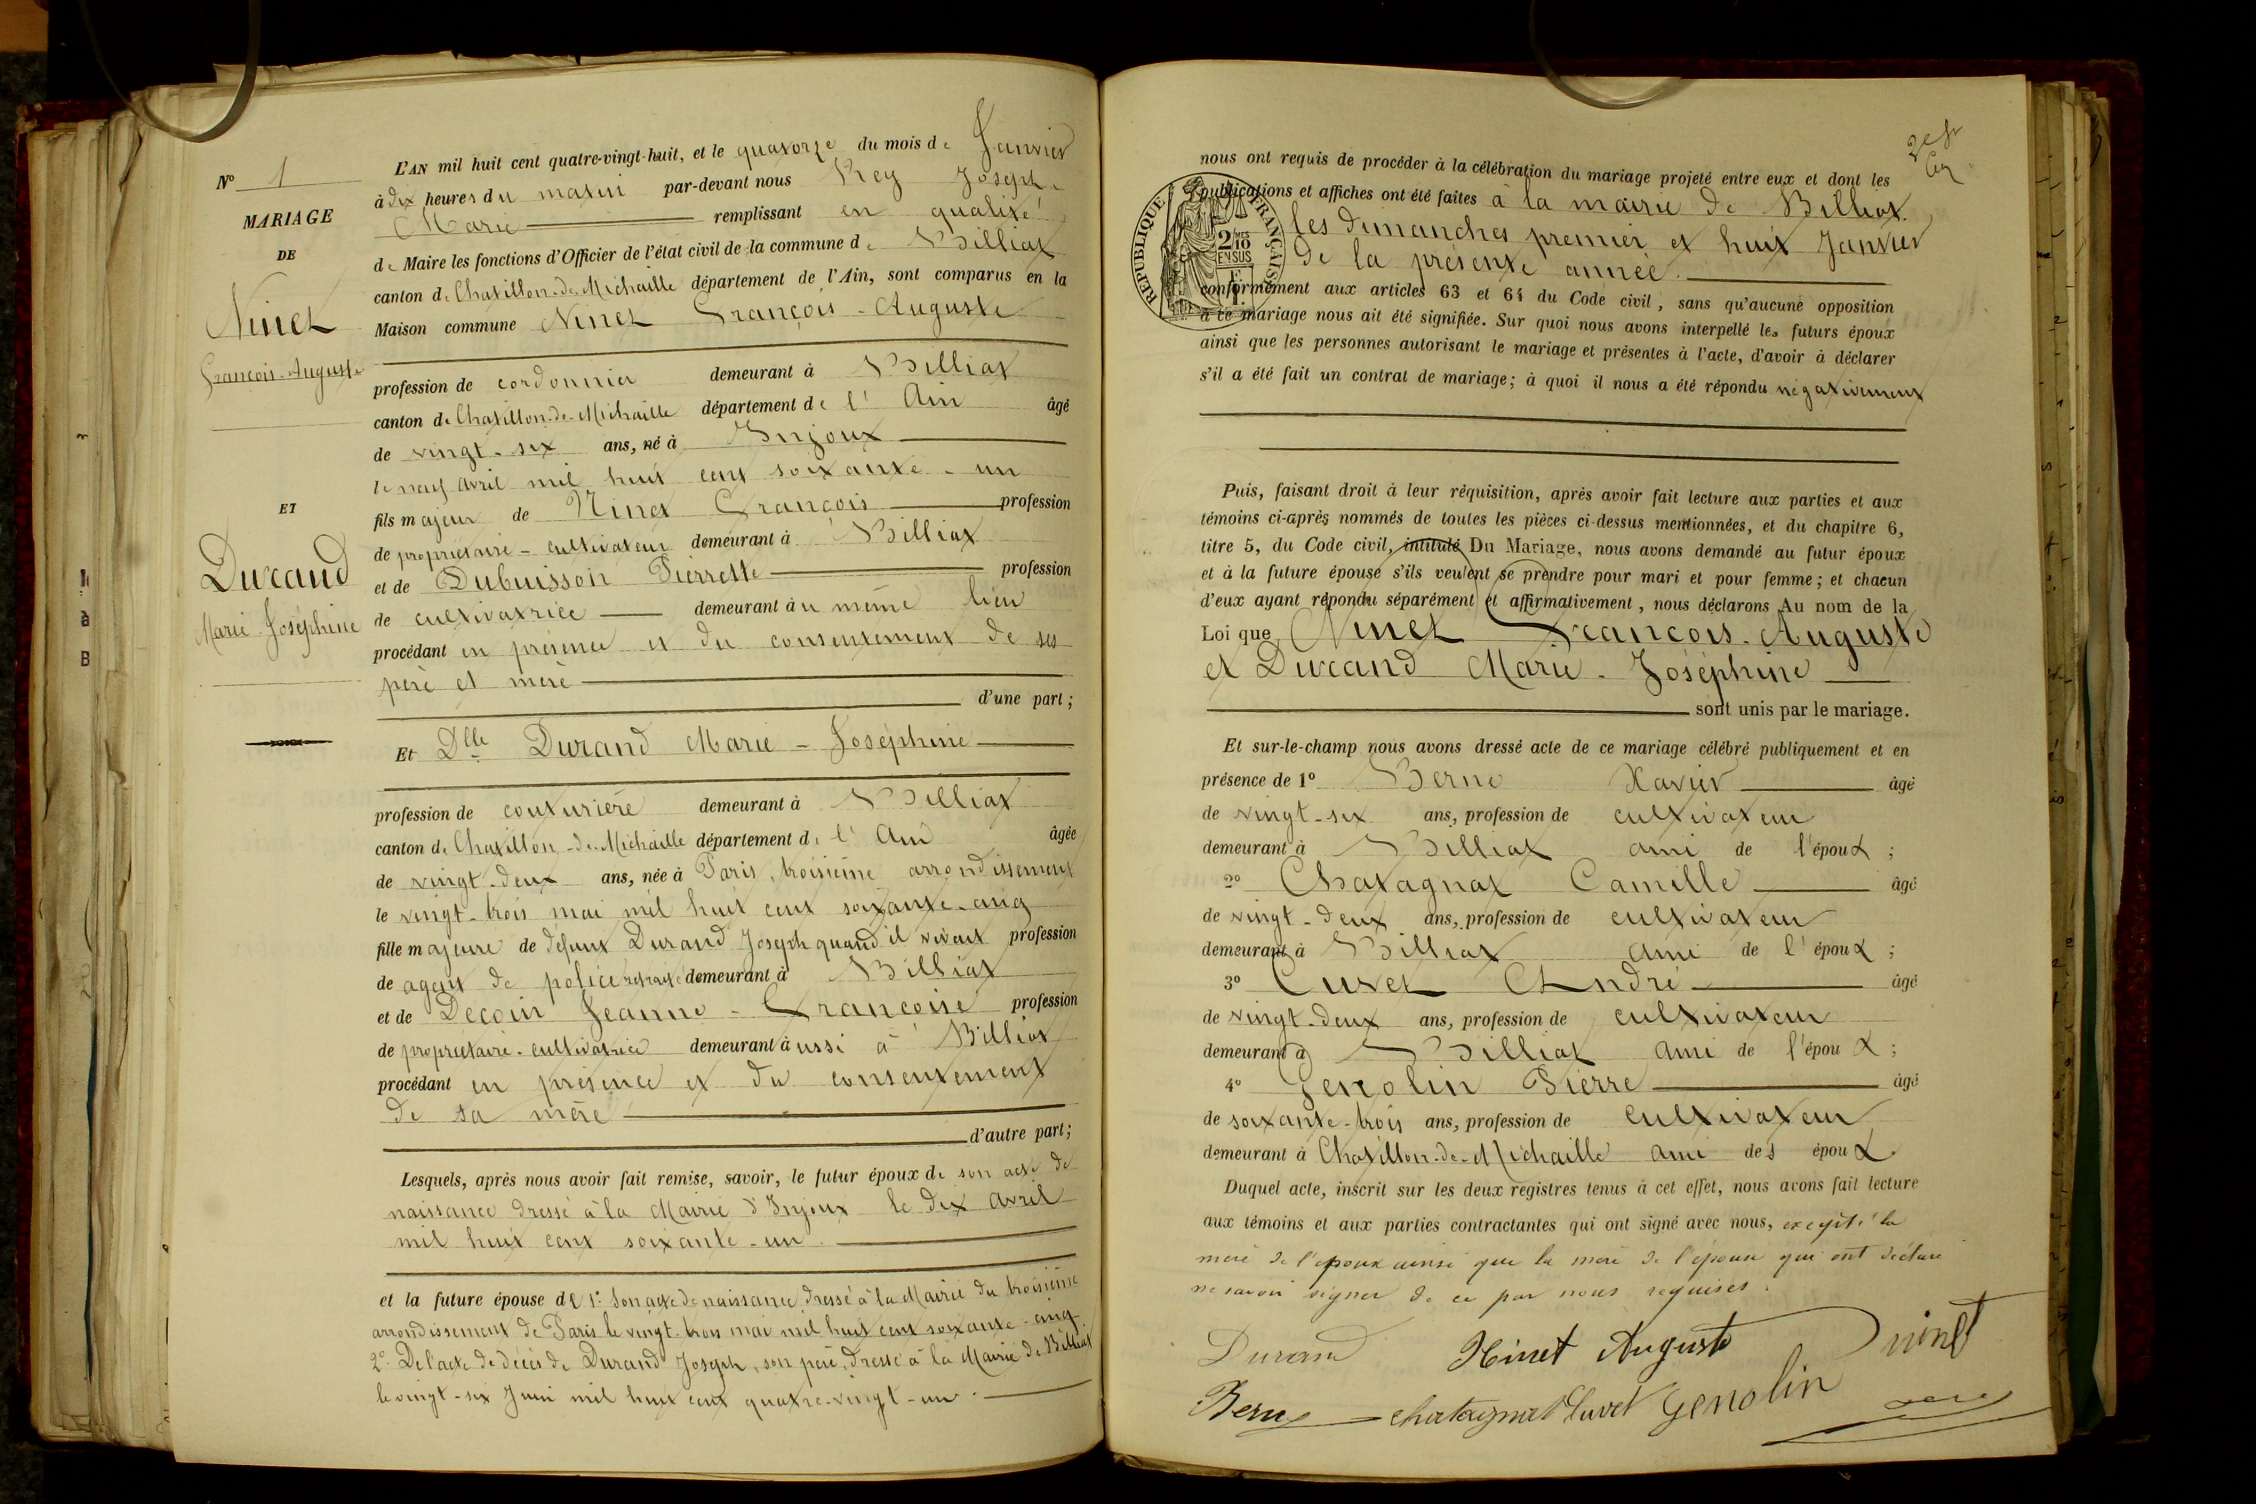 N° 1
MARIAGE
DE
Ninet
François-Auguste
ET
Durand
Marie-Joséphine
L'AN mil huit cent quatre-vingt-huit, et le quatorze du mois de Janvier
à dix heures du matin par-devant nous Rey Joseph
Marie remplissant en qualité
de Maire les fonctions d'Officier de l'état civil de la commune de Billiat
canton de Chatillon-de-Michaille département de l'Ain, sont comparus en la
Maison commune Ninet François-Auguste
profession de cordonnier demeurant à Billiat
canton de Chatillon-de-Michaille département de l'Ain âgé
de vingt-six ans, né à Injoux
le neuf avril mil huit cent soixante-un
fils majeur de Ninet François profession
de propriétaire-cultivateur demeurant à Billiat
et de Dubuisson Pierrette profession
de cultivatrice demeurant au même lieu
procédant en présence et du consentement de ses
père et mère
d'une part;
Et Dlle Durand Marie-Joséphine
profession de couturière demeurant à Billiat
canton de Chatillon-de-Michaille département de l'Ain âgée
de vingt-deux ans, née à Paris, troisième arrondissement
le vingt-trois mai mil huit cent soixante-cinq
fille majeure de défunt Durand Joseph quand il vivait profession
de agent de police retraité demeurant à Billiat
et de Decoin Jeanne-Françoise profession
de propriétaire-cultivatrice demeurant aussi à Billiat
procédant en présence et du consentement
de sa mère
d'autre part;
Lesquels, après nous avoir fait remise, savoir, le futur époux de son acte de
naissance dressé à la Mairie d'Injoux le dix avril
mil huit cent soixante-un.
et la future épouse de 1° Son acte de naissance dressé à la Mairie du troisième
arrondissement de Paris le vingt-trois mai mil huit cent soixante-cinq.
2° De l'acte de décès de Durand Joseph, son père, dressé à la Mairie de Billiat
le vingt-six Juin mil huit cent quatre-vingt-un.
nous ont requis de procéder à la célébration du mariage projeté entre eux et dont les
publications et affiches ont été faites à la mairie de Billiat
les dimanches premier et huit Janvier
de la présente année.
RÉPUBLIQUE FRANÇAISE
2/10 EN SUS
conformément aux articles 63 et 64 du Code civil, sans qu'aucune opposition
à ce mariage nous ait été signifiée. Sur quoi nous avons interpellé les futurs époux
ainsi que les personnes autorisant le mariage et présentes à l'acte, d'avoir à déclarer
s'il a été fait un contrat de mariage; à quoi il nous a été répondu négativement
Puis, faisant droit à leur réquisition, après avoir fait lecture aux parties et aux
témoins ci-après nommés de toutes les pièces ci-dessus mentionnées, et du chapitre 6,
titre 5, du Code civil, intitulé Du Mariage, nous avons demandé au futur époux
et à la future épouse s'ils veulent se prendre pour mari et pour femme; et chacun
d'eux ayant répondu séparément et affirmativement, nous déclarons Au nom de la
Loi que Ninet François-Auguste
et Durand Marie-Joséphine
sont unis par le mariage.
Et sur-le-champ nous avons dressé acte de ce mariage célébré publiquement et en
présence de 1° Berne Xavier âgé
de vingt-six ans, profession de cultivateur
demeurant à Billiat ami de l'époux;
2° Chatagnat Camille âgé
de vingt-deux ans, profession de cultivateur
demeurant à Billiat ami de l'époux;
3° Cuvet André âgé
de vingt-deux ans, profession de cultivateur
demeurant à Billiat ami de l'époux;
4° Genolin Pierre âgé
de soixante-trois ans, profession de cultivateur
demeurant à Chatillon-de-Michaille ami des époux
Duquel acte, inscrit sur les deux registres tenus à cet effet, nous avons fait lecture
aux témoins et aux parties contractantes qui ont signé avec nous, excepté la
mère de l'époux ainsi que la mère de l'épouse qui ont déclaré
ne savoir signer de ce par nous requises.
Durand Ninet Auguste Ninet
Berne chatagnat Cuvet Genolin